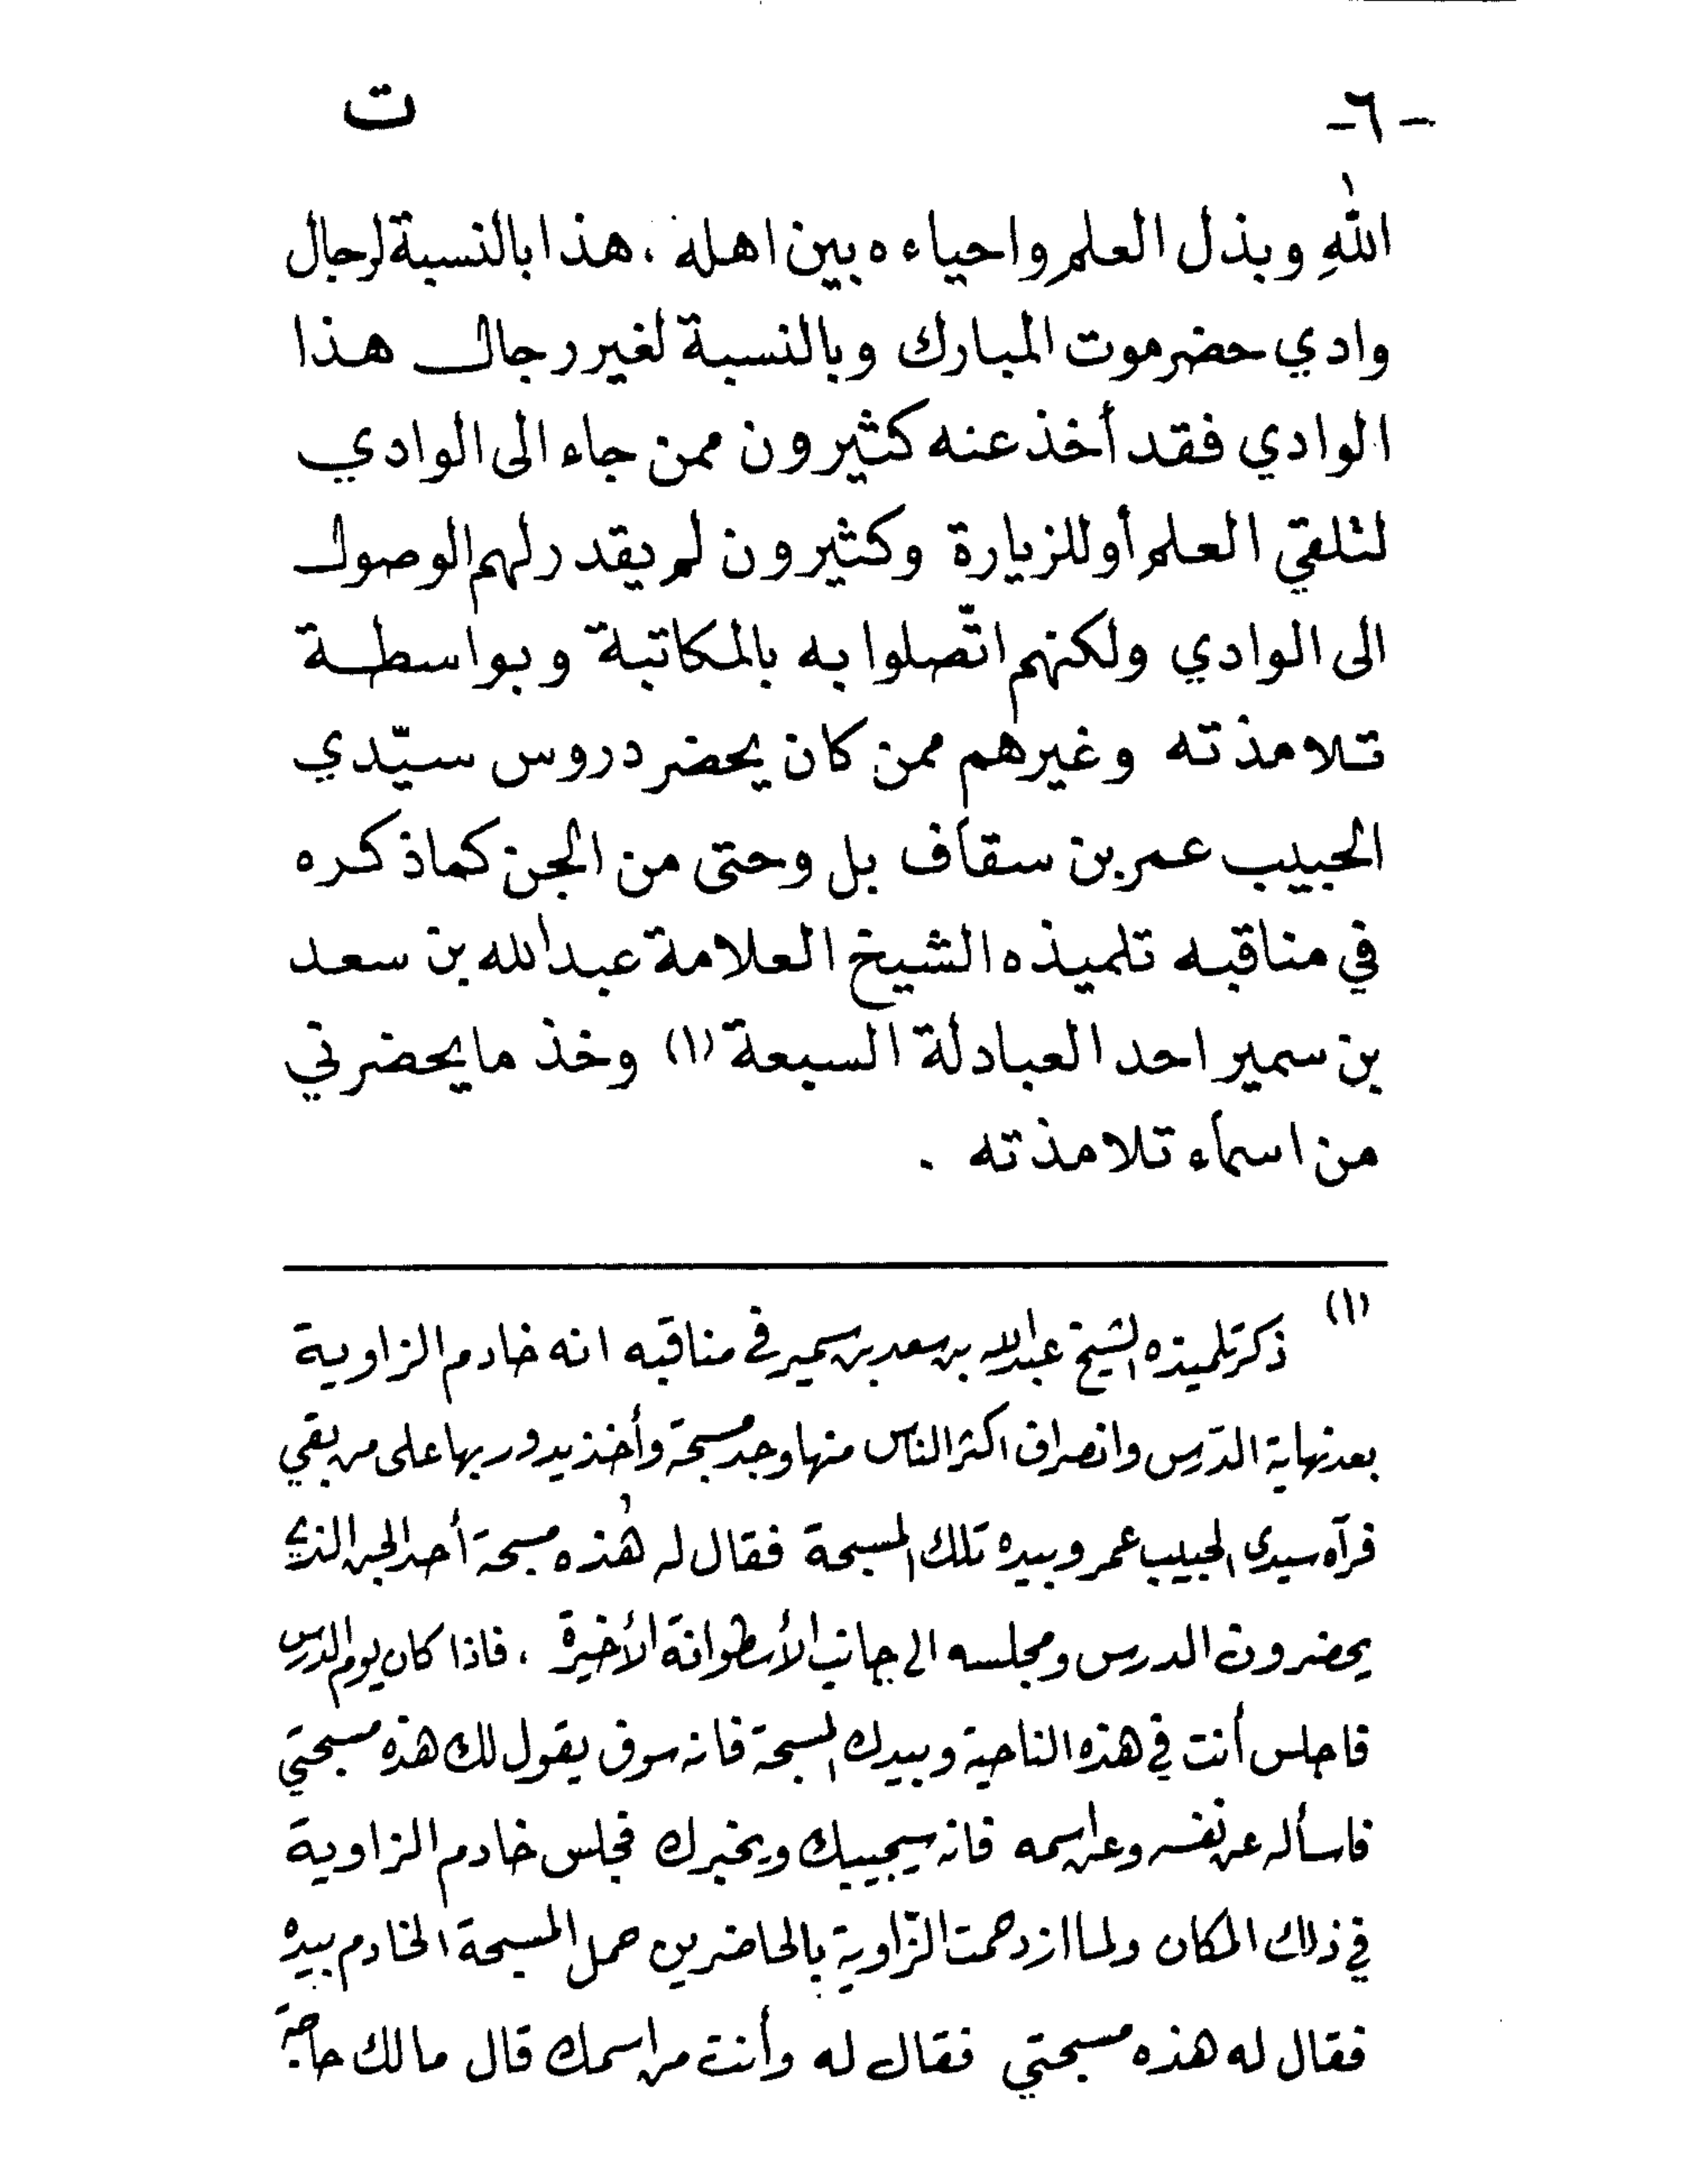 -٦- ت
اللهِ وبذل العلم واحياءه بين اهله ، هذا بالنسبة لرجال
وادي حضرموت المبارك وبالنسبة لغير رجال هذا
الوادي فقد أخذ عنه كثيرون ممن جاء الى الوادي
لتلقي العلم أو للزيارة وكثيرون لم يقدر لهم الوصول
الى الوادي ولكنهم اتّصلوا به بالمكاتبة وبواسطة
تلامذته وغيرهم ممن كان يحضر دروس سيّدي
الحبيب عمر بن سقاف بل وحتى من الجن كما ذكره
في مناقبه تلميذه الشيخ العلامة عبدالله بن سعد
بن سمير احد العبادلة السبعة (١) وخذ ما يحضرني
من اسماء تلامذته .
(١) ذكر تلميذه الشيخ عبدالله بن سعد بن سمير في مناقبه انه خادم الزاوية
بعد نهاية الدّرس وانصراف اكثر الناس منها وجد مسبحة وأخذ يدور بها على من بقي
فرآه سيدي الحبيب عمر وبيده تلك المسبحة فقال له هٰذه مسبحة أحد الجن الذي
يحضرون الدرس ومجلسه الى جانب الأسطوانة الأخيرة ، فاذا كان يوم الدرس
فاجلس أنت في هذه الناحية وبيدك المسبحة فانه سوف يقول لك هذه مسبحتي
فاسأله عن نفسه وعن اسمه فانه سيجيبك ويخبرك فجلس خادم الزاوية
في ذلك المكان ولما ازدحمت الزّاوية بالحاضرين حمل المسبحة الخادم بيده
فقال له هذه مسبحتي فقال له وأنت من اسمك قال مالك حاجة